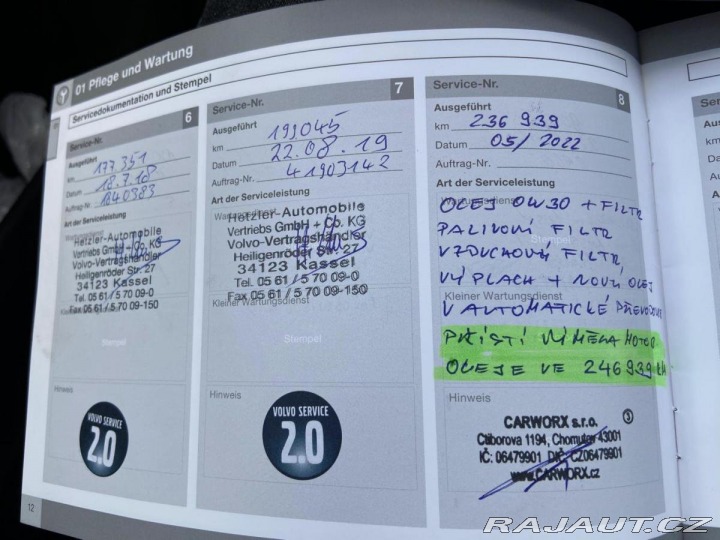 01 Pflege und Wartung
Servicedokumentation und Stempel
Service-Nr. 6
Ausgeführt
km 177 351
Datum 18.7.18
Auftrag-Nr.
Art der Serviceleistung
Wartungsdienst
Hetzler-Automobile
Vertriebs GmbH + Co. KG
Volvo-Vertragshändler
Heiligenröder Str. 27
34123 Kassel
Tel. 05 61 / 5 70 09-0
Fax 05 61 / 5 70 09-150
Kleiner Wartungsdienst
Stempel
Hinweis
VOLVO SERVICE
2.0
12
Service-Nr. 7
Ausgeführt
km 199045
Datum 22.08.19
Auftrag-Nr. 41903142
Art der Serviceleistung
Wartungsdienst
Hetzler-Automobile
Vertriebs GmbH + Co. KG
Volvo-Vertragshändler
Heiligenröder Str. 27
34123 Kassel
Tel. 05 61 / 5 70 09-0
Fax 05 61 / 5 70 09-150
Kleiner Wartungsdienst
Stempel
Hinweis
VOLVO SERVICE
2.0
Service-Nr. 8
Ausgeführt
km 236 939
Datum 05/2022
Auftrag-Nr.
Art der Serviceleistung
Wartungsdienst
OLEJ 0W30 + FILTR
PALIVOVÍ FILTR
Stempel
VZDUCHOVÝ FILTR,
VÝPLACH + NOVÝ OLEJ
Kleiner Wartungsdienst
V AUTOMATICKÉ
PŘÍŠTÍ VÝMĚNA MOTOR
OLEJE VE 246939 KM
Hinweis
CARWORX s.r.o. 3
Ctiborova 1194, Chomutov 43001
IČ: 06479901 DIČ: CZ06479901
www.CARWORX.cz
RAJAUT.CZ